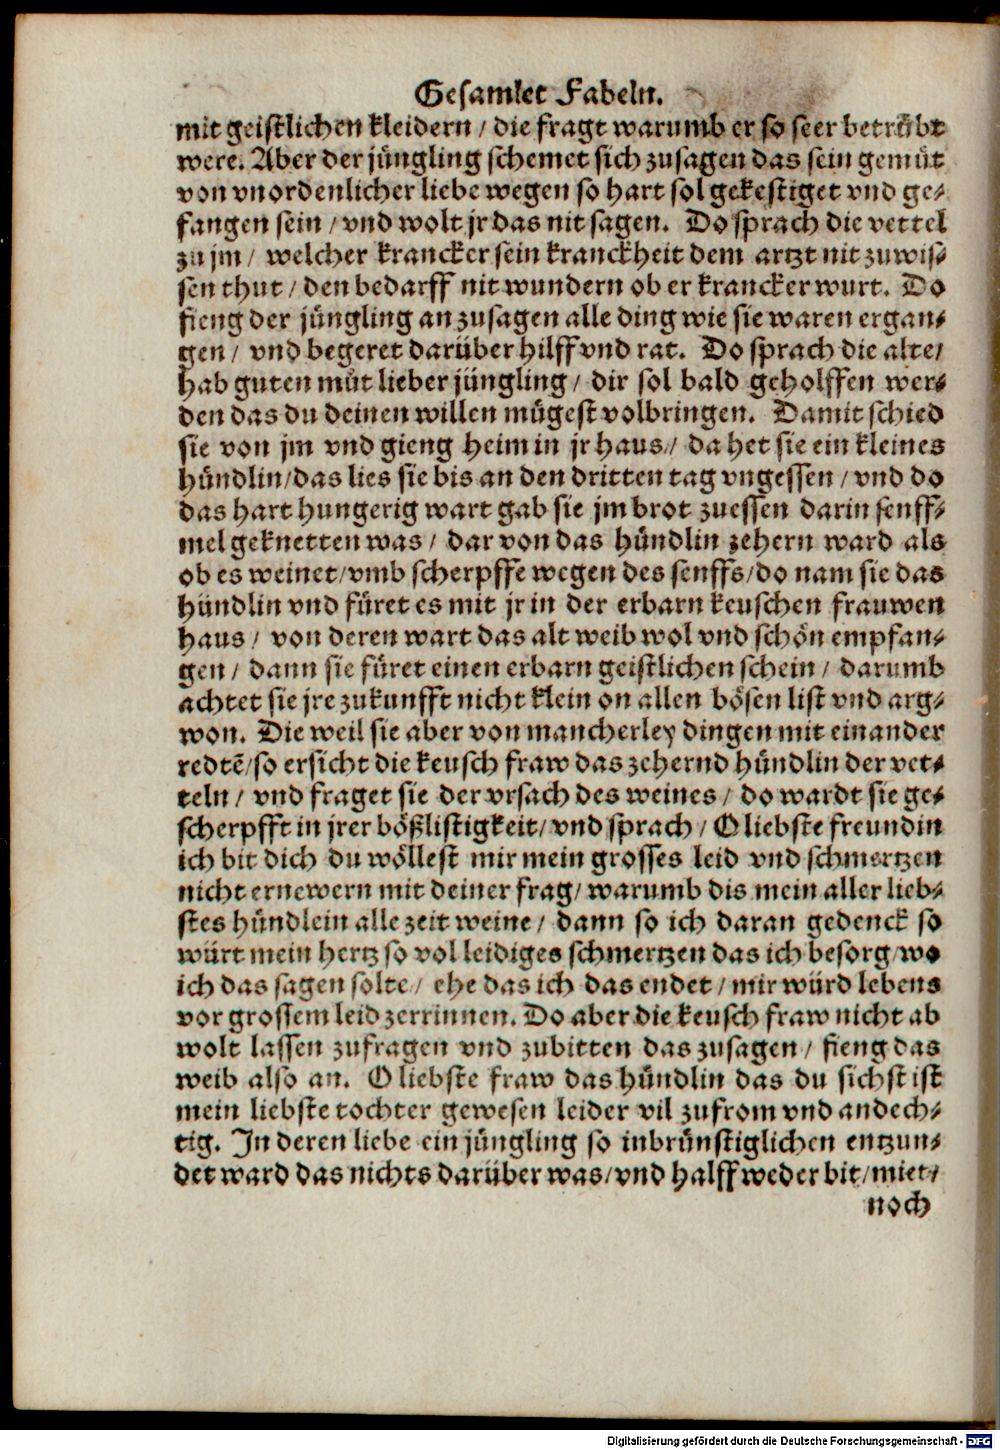 Gesamlet Fabeln.
mit geistlichen kleidern / die fragt warumb er so seer betrübt
were. Aber der jüngling schemet sich zusagen das sein gemüt
von vnordenlicher liebe wegen so hart sol gekestiget vnd ge-
fangen sein / vnd wolt jr das nit sagen. Do sprach die vettel
zu jm / welcher krancker sein kranckheit dem artzt nit zuwis-
sen thut / den bedarff nit wundern ob er krancker wurt. Do
fieng der jüngling an zusagen alle ding wie sie waren ergan-
gen / vnd begeret darüber hilff vnd rat. Do sprach die alte/
hab guten müt lieber jüngling / dir sol bald geholffen wer-
den das du deinen willen mügest volbringen. Damit schied
sie von jm vnd gieng heim in jr haus / da het sie ein kleines
hündlin/das lies sie bis an den dritten tag vngessen / vnd do
das hart hungerig wart gab sie jm brot zuessen darin senff-
mel geknetten was / dar von das hündlin zehern ward als
ob es weinet/vmb scherpffe wegen des senffs/do nam sie das
hündlin vnd füret es mit jr in der erbarn keuschen frauwen
haus / von deren wart das alt weib wol vnd schön empfan-
gen / dann sie füret einen erbarn geistlichen schein / darumb
achtet sie jre zukunfft nicht klein on allen bösen list vnd arg-
won. Die weil sie aber von mancherley dingen mit einander
redtē/so ersicht die keusch fraw das zehernd hündlin der vet-
teln / vnd fraget sie der vrsach des weines / do wardt sie ge-
scherpfft in jrer bößlistigkeit/ vnd sprach / O liebste freundin
ich bit dich du wöllest mir mein grosses leid vnd schmertzen
nicht ernewern mit deiner frag/ warumb dis mein aller lieb-
stes hündlein alle zeit weine / dann so ich daran gedenck so
würt mein hertz so vol leidiges schmertzen das ich besorg/wo
ich das sagen solte / ehe das ich das endet / mir würd lebens
vor grossem leid zerrinnen. Do aber die keusch fraw nicht ab
wolt lassen zufragen vnd zubitten das zusagen / fieng das
weib also an. O liebste fraw das hündlin das du sichst ist
mein liebste tochter gewesen leider vil zufrom vnd andech-
tig. In deren liebe ein jüngling so inbrünstiglichen entzun-
det ward das nichts darüber was/vnd halff weder bit/miet/
noch
Digitalisierung gefördert durch die Deutsche Forschungsgemeinschaft - DFG